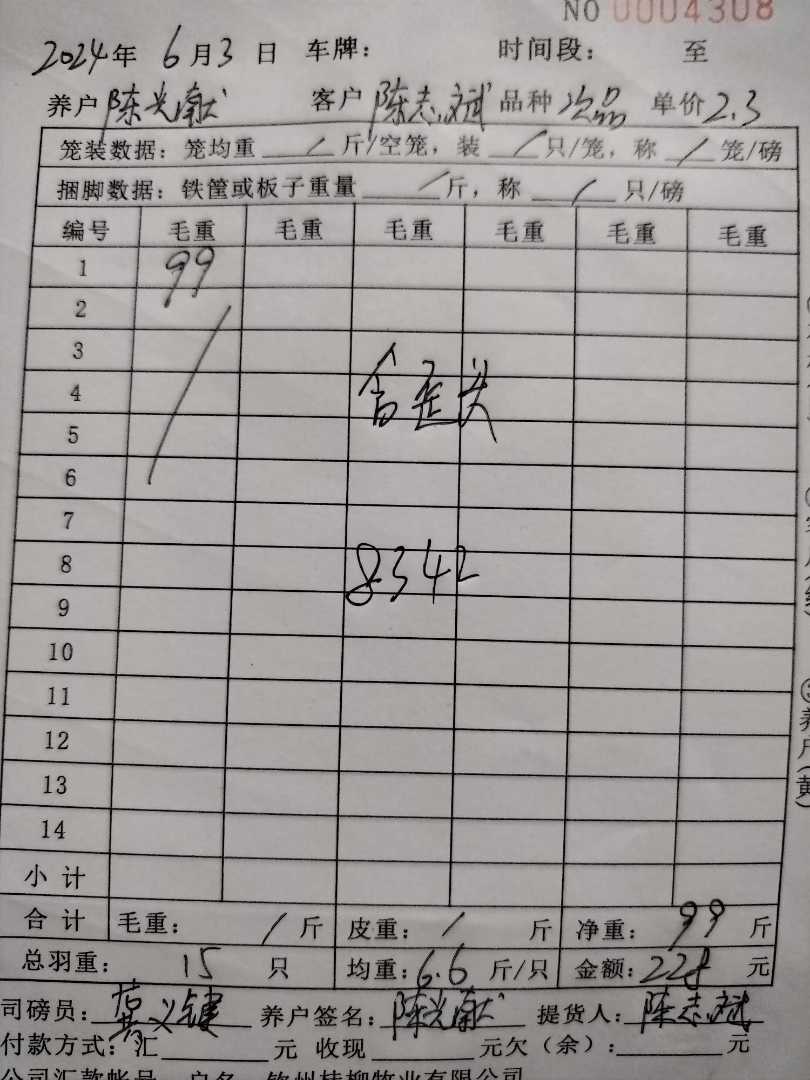 NO 0004308
2024年 6月3日 车牌: 时间段: 至
养户 陈光献 客户 陈志斌 品种 次品 单价 2.3
笼装数据: 笼均重 / 斤/空笼, 装 / 只/笼, 称 / 笼/磅
捆脚数据: 铁筐或板子重量 / 斤, 称 / 只/磅
编号 毛重 毛重 毛重 毛重 毛重 毛重
1 99
2
3
4 含歪头
5
6
7
8 8342
9
10
11
12
13
14
小计
合计 毛重: / 斤 皮重: / 斤 净重: 99 斤
总羽重: 15 只 均重: 6.6 斤/只 金额: 228 元
司磅员: 义键 养户签名: 陈光献 提货人: 陈志斌
付款方式: 汇 元 收现 元欠(余): 元
公司汇款帐号 户名 钦州桂柳牧业有限公司
养户(黄)